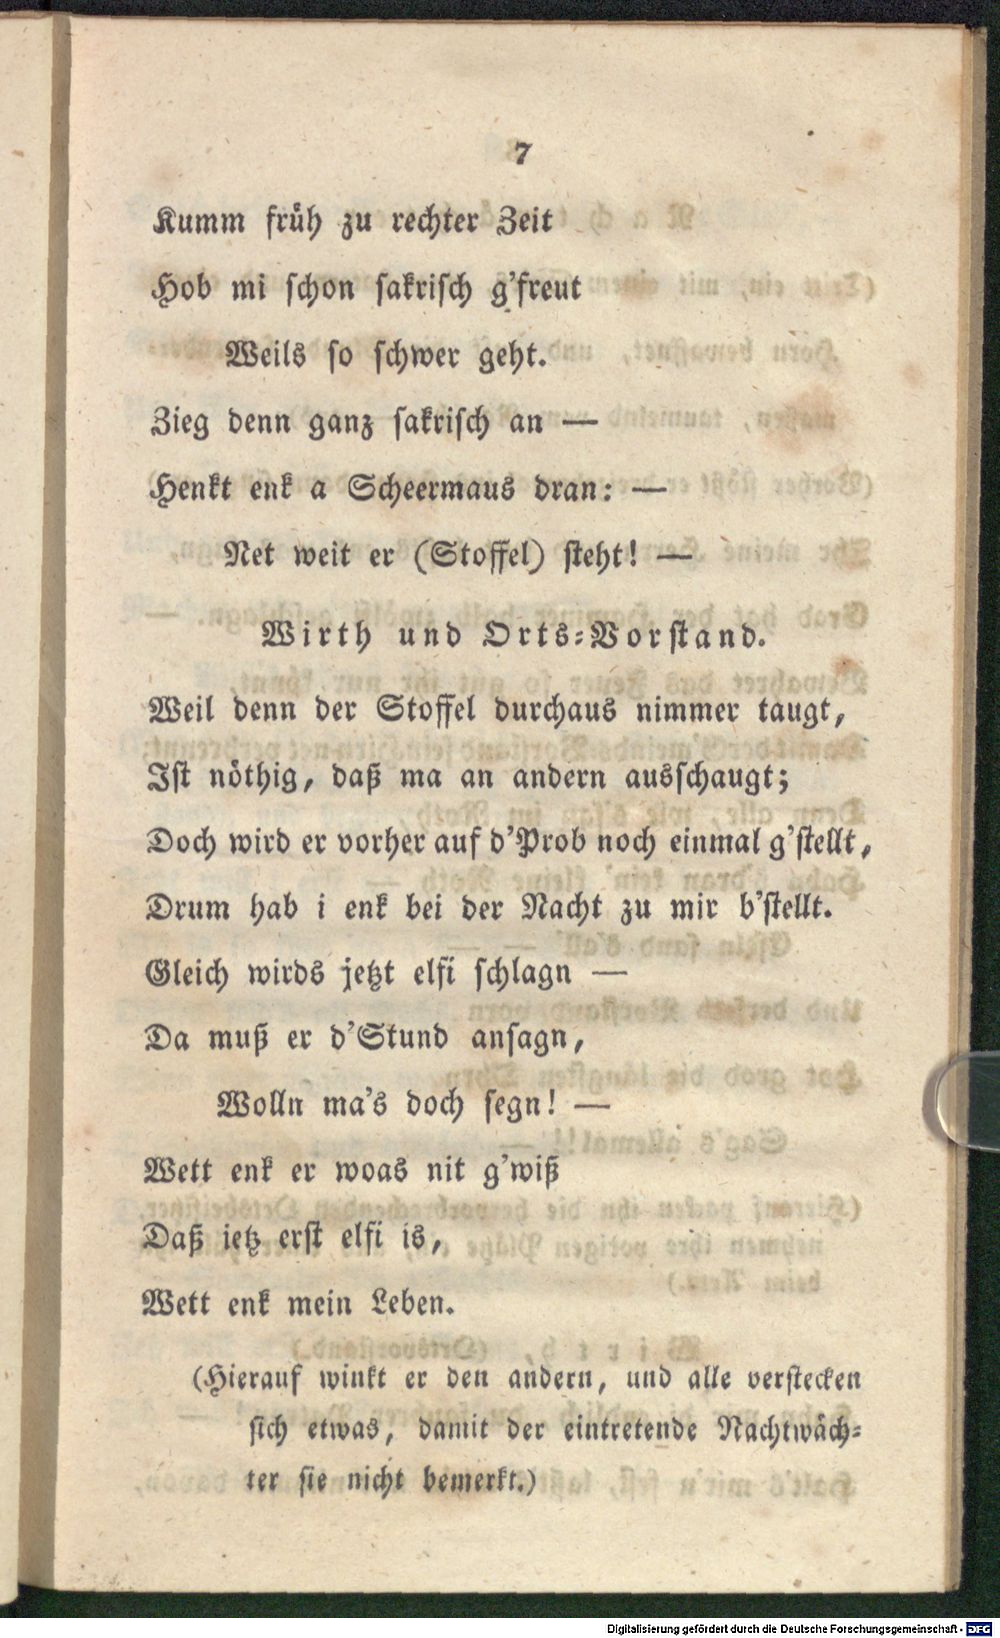 7
Kumm früh zu rechter Zeit
Hob mi schon sakrisch g'freut
Weils so schwer geht.
Zieg denn ganz sakrisch an —
Henkt enk a Scheermaus dran: —
Net weit er (Stoffel) steht! —
Wirth und Orts-Vorstand.
Weil denn der Stoffel durchaus nimmer taugt,
Ist nöthig, daß ma an andern ausschaugt;
Doch wird er vorher auf d'Prob noch einmal g'stellt,
Drum hab i enk bei der Nacht zu mir b'stellt.
Gleich wirds jetzt elfi schlagn —
Da muß er d'Stund ansagn,
Wolln ma's doch segn! —
Wett enk er woas nit g'wiß
Daß ietz erst elfi is,
Wett enk mein Leben.
(Hierauf winkt er den andern, und alle verstecken
sich etwas, damit der eintretende Nachtwäch-
ter sie nicht bemerkt.)
Digitalisierung gefördert durch die Deutsche Forschungsgemeinschaft - DFG